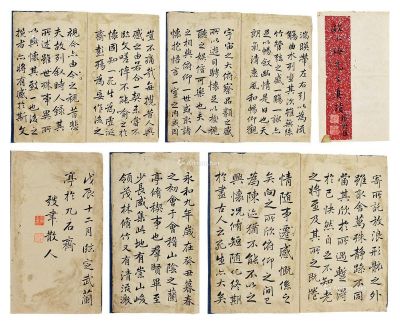 永和九年歲在癸丑暮春
之初會于會稽山陰之蘭
亭脩禊事也羣賢畢至
少長咸集此地有崇山峻
領茂林脩竹又有清流激
湍暎帶左右引以為流
觴曲水列坐其次雖無絲
竹管弦之盛一觴一詠亦
足以暢敘幽情是日也天
朗氣清惠風和暢仰觀
宇宙之大俯察品類之盛
所以遊目騁懷足以極視
聽之娛信可樂也夫人
之相與俯仰一世或取諸
懷抱悟言一室之內或因
寄所託放浪形骸之外
雖趣舍萬殊靜躁不同
當其欣於所遇暫得
於己快然自足不知老
之將至及其所之既惓
情隨事遷感慨係之
矣向之所欣俛仰之間已
為陳迹猶不能不以之
興懷況脩短隨化終期
於盡古人云死生亦大矣
豈不痛哉每攬昔人興
感之由若合一契未嘗不
臨文嗟悼不能喻之於
懷固知一死生為虛誕
齊彭殤為妄作後之
視今亦由今之視昔悲
夫故列敘時人錄其
所述雖世殊事異所
以興懷其致一也後之
攬者亦將有感於斯文
戊辰十二月臨定武蘭
亭於九石齋
散人